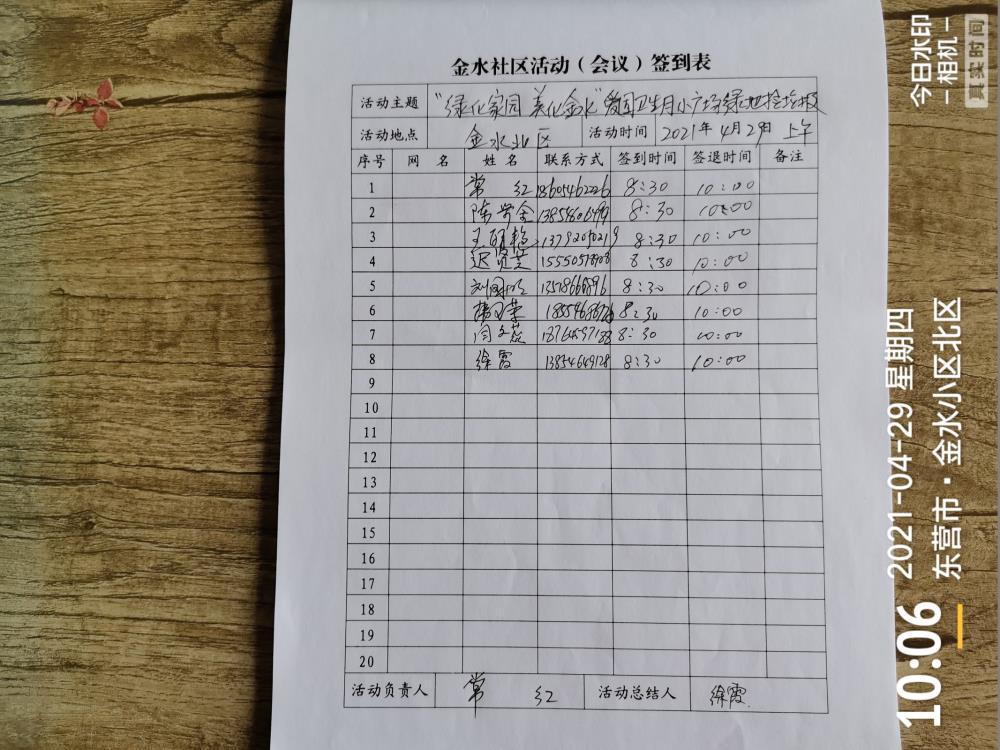 金水社区活动（会议）签到表
活动主题 "绿化家园 美化金水"爱国卫生月小广场绿地捡垃圾
活动地点 金水北区 活动时间 2021年4月29日 上午
序号 网 名 姓 名 联系方式 签到时间 签退时间 备注
1 常 红 18605462226 8:30 10:00
2 8:30 10:00
3 8:30 10:00
4 迟贤芝 8:30 10:00
5 8:30 10:00
6 8:30 10:00
7 闫文蕊 8:30 10:00
8 徐霞 13854649128 8:30 10:00
9
10
11
12
13
14
15
16
17
18
19
20
活动负责人 常 红 活动总结人 徐霞
今日水印
相机
真实时间
10:06
2021-04-29 星期四
东营市·金水小区北区